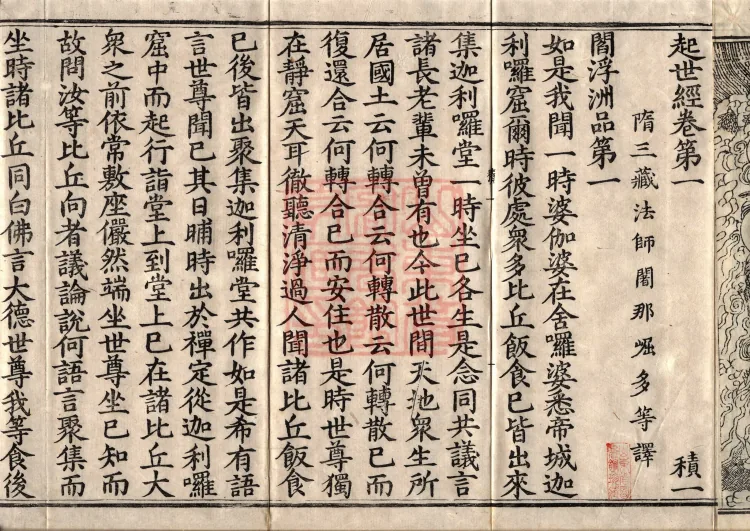 起世經卷第一 積一
隋三藏法師闍那崛多等譯
閻浮洲品第一
如是我聞一時婆伽婆在舍囉婆悉帝城迦
利囉窟爾時彼處衆多比丘飯食已皆出來
集迦利囉堂一時坐已各生是念同共議言
諸長老輩未曾有也今此世間天地衆生所
居國土云何轉合云何轉散云何轉散已而
復還合云何轉合已而安住也是時世尊獨
在靜窟天耳徹聽清淨過人聞諸比丘飯食
已後皆出聚集迦利囉堂共作如是希有語
言世尊聞已其日晡時出於禪定從迦利囉
窟中而起行詣堂上到堂上已在諸比丘大
衆之前依常敷座儼然端坐世尊坐已知而
故問汝等比丘向者議論說何語言聚集而
坐時諸比丘同白佛言大德世尊我等食後